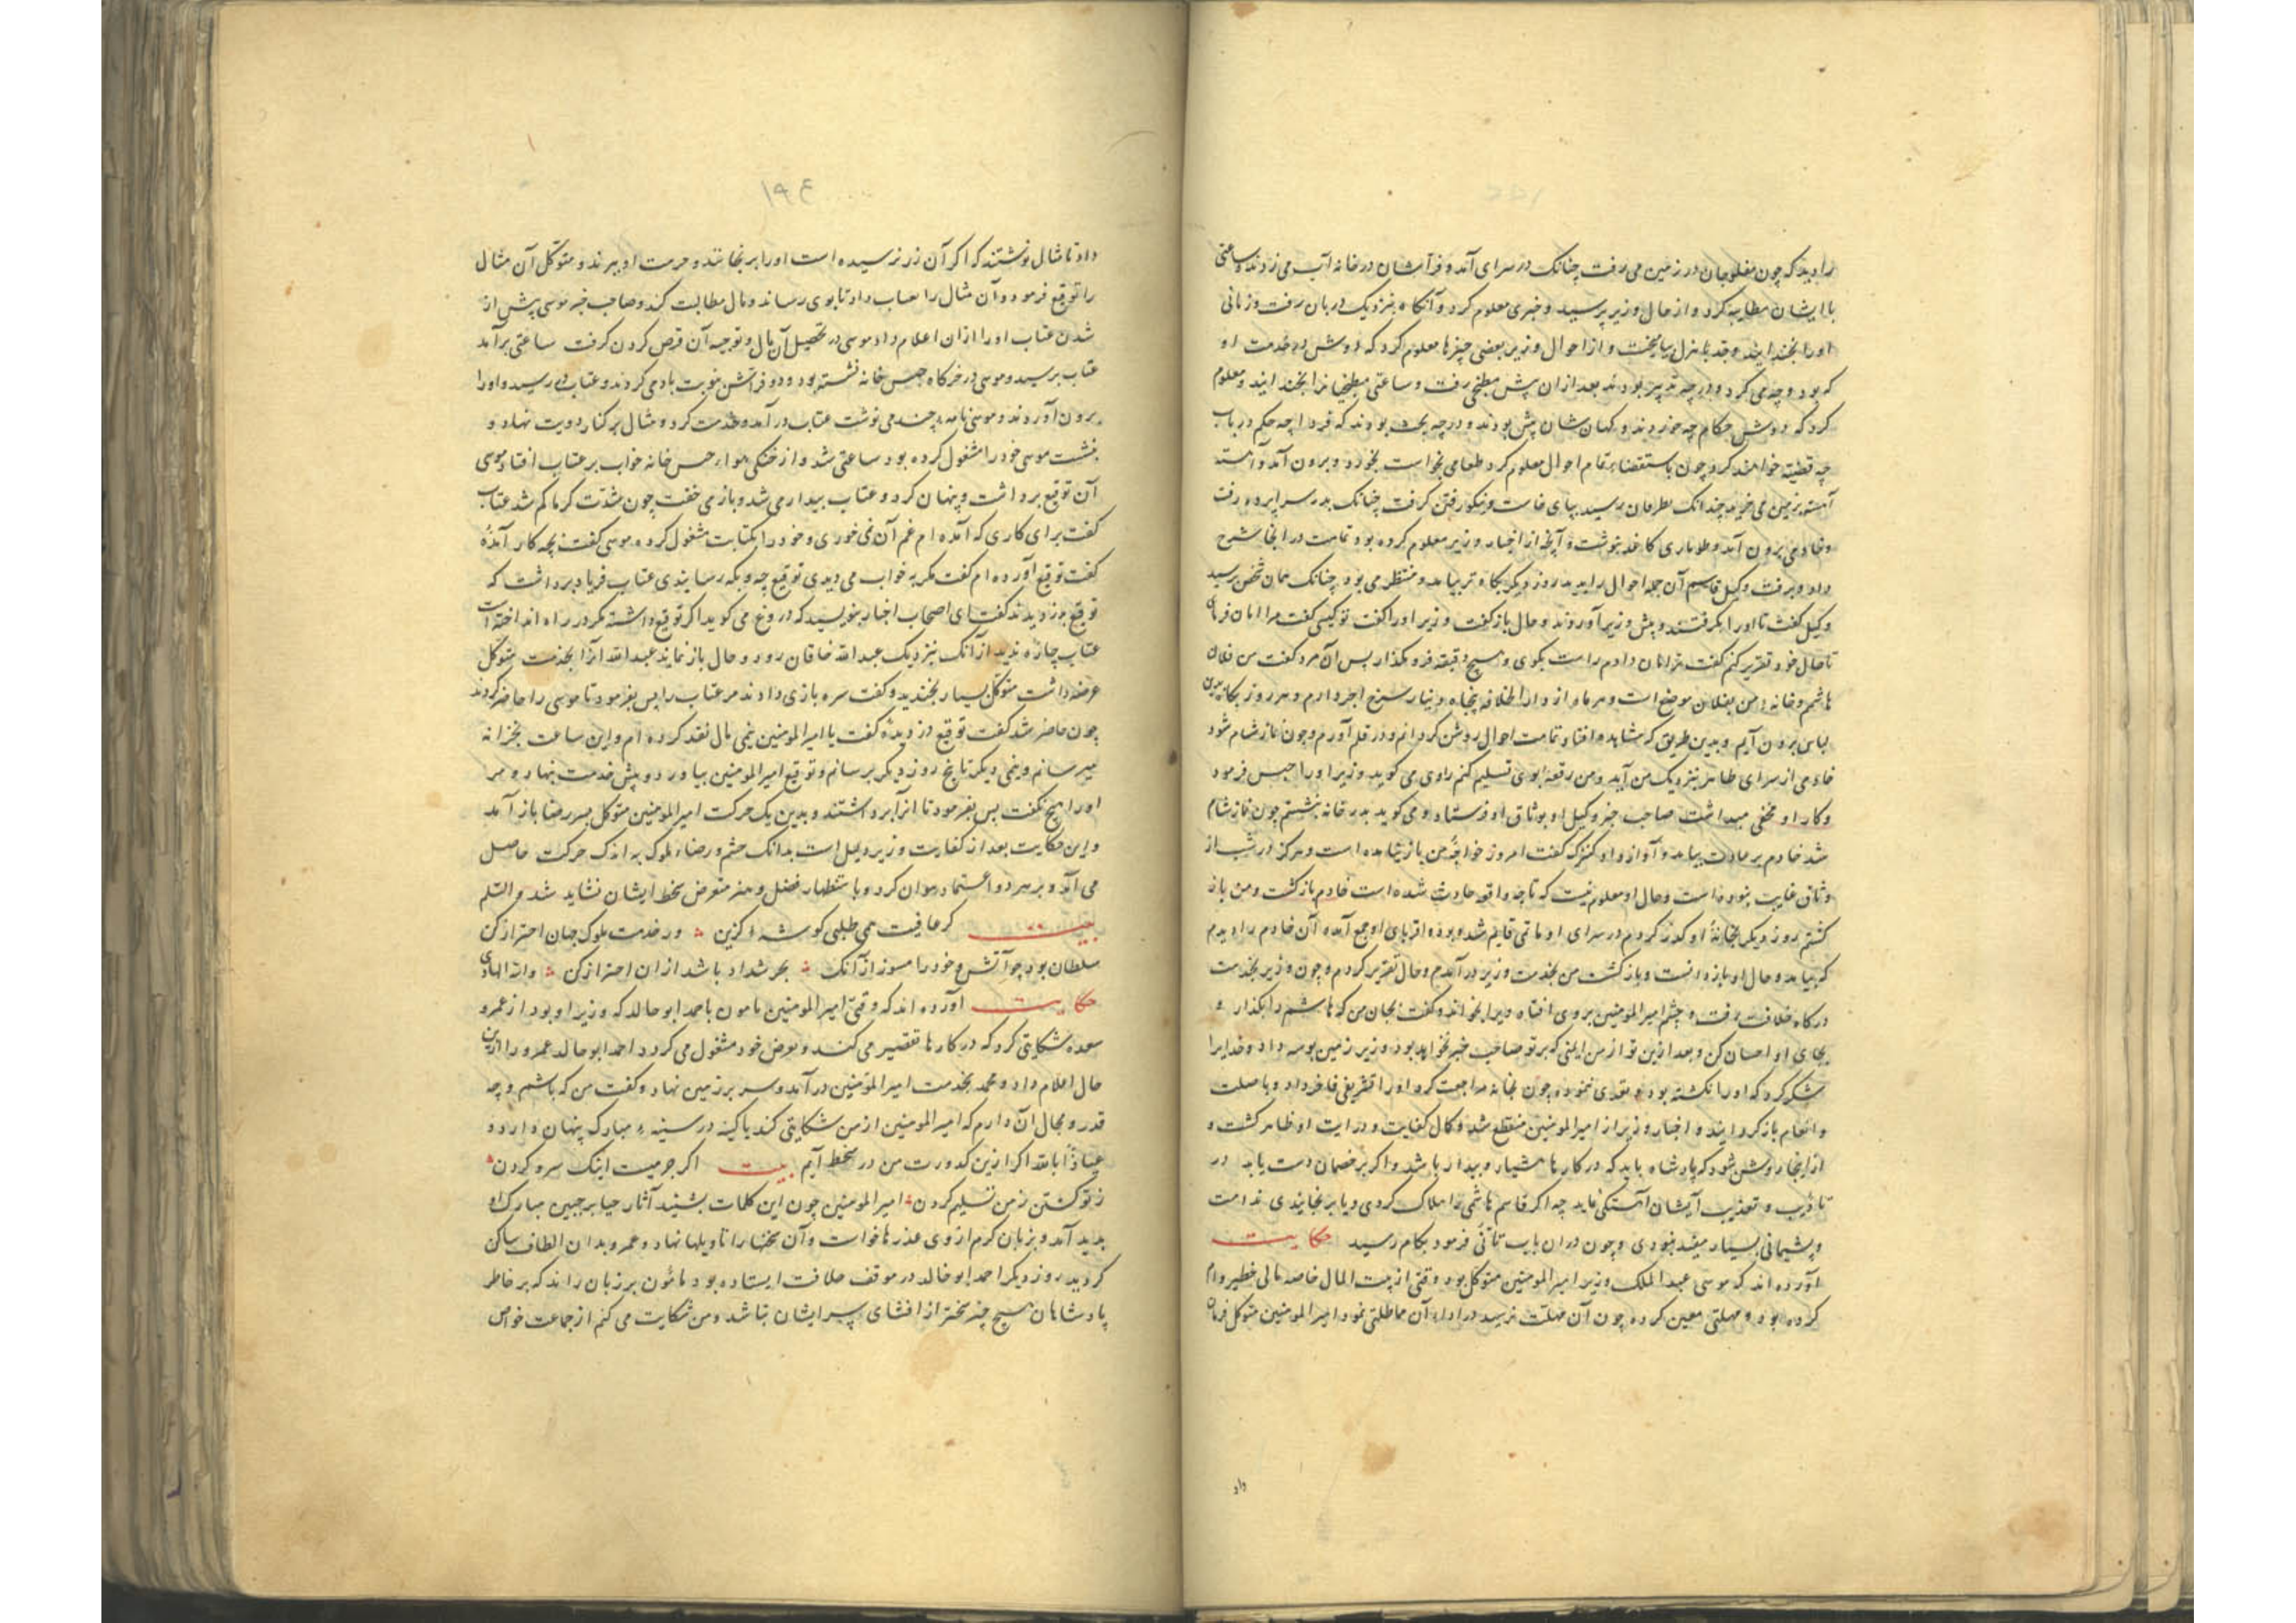 را دید که چون مفلوجان در زمین می رفت چنانک در سرای آمد و فراشان در خانه آب می زدند و ساعتی
با ایشان مطایبه کرد و از حال وزیر پرسید و خبری معلوم کرد و آنگاه بنزدیک دربان رفت و زمانی
او را بخندانید و از احوال وزیر بعضی چیزها معلوم کرد که دوش در خدمت او
که بود و چه می کرد و در چه تدبیر بودند بعد از ان پیش مطبخی رفت و ساعتی مطبخیانرا بخندانید و معلوم
کرد که دوش حکام چه خوردند و کهان شان پیش بودند و در چه بحث بودند که فردا چه حکم در باب
چه قضیت خواهند کرد چون باستقصا تمام احوال معلوم کرد طعامی بخواست بخورد و برون آمد و آهسته
آهسته بزمین می خزید چندانک رسید بپای خاست و نیکو رفتن گرفت چنانک بدر سراپرده رفت
و خادمی برون آمد و طوماری کاغذ نوشت و آنچه از اخبار وزیر معلوم کرده بود تمامت در انجا شرح
داد و برفت وکیل قاسم آن جمله احوال را بدید روز دیگر بگاه تر بیامد و منتظر می بود چنانک همان شخص برسید
وکیل گفت تا او را بگرفتند و پیش وزیر آوردند و حال باز گفت وزیر او را گفت تو کیسی گفت مرا امان فرمای
تا حال خود تقریر کنم گفت ترا امان دادم راست بگوی و هیچ دقیقه فرو مگذار پس آن مرد گفت من فلان
هاشمم و خانه من بفلان موضع است و هر ماه از دار الخلافه پنجاه دینار سرخ اجر دارم و هر روز بگاه بدین
لباس برون آیم و بدین طریق که مشاهده افتاد تمامت احوال روشن گردانم و در قلم آورم و چون نماز شام شود
خادمی از سرای طاهر بنزدیک من آید و من رقعه بوی تسلیم کنم راوی می گوید وزیر او را حبس فرمود
و کار او مخفی میداشت صاحب خبر وکیل او بوثاق او فرستاد و می گوید بدر خانه بنشستم چون نماز شام
شد خادم بر عادت بیامد و آواز داد کنیزک گفت امروز خواجهٔ من باز نیامده است و هرگز در شب از
وثاق غایب نبوده است و حال او معلوم نیست که تا چه واقعه حادث شده است خادم بازگشت و من باز
گشتم روز دیگر بخانهٔ او گذر کردم در سرای او ماتمی قایم شده بود و اقربای او جمع آمده آن خادم را دیدم
که بیامد و حال او بازدانست و بازگشت من بخدمت وزیر درآمدم و حال تقریر کردم و چون وزیر بخدمت
درگاه خلافت رفت و چشم امیرالمومنین بروی افتاد ویرا بخواند و گفت بجان من که هاشم را بگذار و
بجای او احسان کن و بعد ازین تو از من ایمنی که بر تو صاحب خبر نخواهد بود وزیر زمین بوسه داد و خدایرا
شکر کرد که او را نکشته بود و تعدی ننموده چون بخانه مراجعت کرد او را تشریفی فاخر داد و با صلت
و انعام باز گردانید و اخبار وزیر از امیرالمومنین منقطع شد و کمال کفایت و درایت او ظاهر گشت و
از اینجا روشن شود که پادشاه باید که در کارها هشیار و بیدار باشد و اگر بر خصمان دست یابد در
تادیب و تعذیب ایشان آهستگی نماید چه اگر قاسم هاشمی را هلاک کردی و یا برنجانیدی ندامت
و پشیمانی بسیار مفید نبودی و چون در ان باب تانی فرمود بکام رسید حکایت
آورده اند که موسی عبد الملک وزیر امیرالمومنین متوکل بود وقتی از بیت المال خاصه مالی خطیر وام
کرده بود و مهلتی معین کرده چون آن مهلت برسید در اداء آن مماطلتی نمود امیرالمومنین متوکل فرمان
داد
۱۹۴
داد تا مثال نوشتند که اگر آن زر نرسیده است او را برنجانند و حرمت او ببرند و متوکل آن مثال
را توقیع فرمود و آن مثال را بعتاب داد تا بوی رساند و مال مطالبت کند و صاحب خبر موسی پیش از
شدن عتاب او را ازان اعلام داد موسی در تحصیل آن مال و توجیه آن قرض کردن گرفت ساعتی برآمد
عتاب برسید و موسی در خرگاه خیس خانه نشسته بود و دو فراش بنوبت باد می کردند و عتاب در رسید و او را
برون آوردند و موسی نامه چند می نوشت عتاب درآمد و خدمت کرد و مثال بر کنار دویت نهاد و
بنشست موسی خود را مشغول کرده بود ساعتی شد و از خنکی هواء خیس خانه خواب بر عتاب افتاد موسی
آن توقیع برداشت و پنهان کرد و عتاب بیدار می شد و باز می خفت چون شدت گرما کم شد عتاب
گفت برای کاری که آمده ام غم آن نمی خوری و خود را بکتابت مشغول کرده موسی گفت بچه کار آمدهٔ
گفت توقیع آورده ام گفت مگر به خواب می دیدی توقیع چه و بکه رسانیدی عتاب فریاد برداشت که
توقیع بدزدیدند گفت ای اصحاب اخبار بنویسید که دروغ می گوید اگر توقیع داشته مگر در راه انداخته است
عتاب چاره ندید از آنک بنزدیک عبد الله خاقان رود و حال باز نماید عبد الله آنرا بخدمت متوکل
عرضه داشت متوکل بسیار بخندید و گفت سره بازی دادند مر عتاب را پس بفرمود تا موسی را حاضر کردند
چون حاضر شد گفت توقیع دزدیدهٔ گفت یا امیرالمومنین نیمی مال نقد کرده ام و این ساعت بخزانه
میرسانم و نیمی دیگر تا پنج روز دیگر برسانم و توقیع امیرالمومنین بیاورد و پیش خدمت بنهاد و مر
او را هیچ نگفت پس بفرمود تا آنرا برداشتند و بدین یک حرکت امیرالمومنین متوکل بسر رضا باز آمد
و این حکایت بعد از کفایت وزیر دلیل است بدانک خشم و رضاء ملوک به اندک حرکت حاصل
می آید و بر هر دو اعتماد نتوان کرد و با ستظهار فضل و هنر متعرض سخط ایشان نشاید شد والسلم
بیت گر عافیت همی طلبی گوشه گزین ؞ ور خدمت ملوک جهان احتراز کن
سلطان بود چو آتش و خود را مسوز از آنک ؞ بحر شداد باشد ازان احتراز کن ؞ والله الهادی
حکایت آورده اند که وقتی امیرالمومنین مامون با احمد ابو خالد که وزیر او بود از عمرو
سعده شکایتی کرد که در کارها تقصیر می کند و بغرض خود مشغول می گردد احمد ابو خالد عمرو را ازین
حال اعلام داد و محمد بخدمت امیرالمومنین درآمد و سر بر زمین نهاد و گفت من که باشم و چه
قدر و مجال آن دارم که امیرالمومنین از من شکایتی کند یا کینه در سینهٔ مبارک پنهان دارد و
عیاذاً بالله اگر ازین کدورت من در سخط آیم بیت اگر جرمیست اینک سر و گردن ؞
ز تو کشتن ز من تسلیم کردن ؞ امیرالمومنین چون این کلمات بشنید آثار حیا بر جبین مبارک او
پدید آمد و بزبان کرم از وی عذرها خواست و آن سخنها را تاویلها نهاد و عمرو بدان الطاف ساکن
گردید روز دیگر احمد ابو خالد در موقف خلافت ایستاده بود مامون بر زبان راند که بر خاطر
پادشاهان هیچ چیز سختر از افشای سر ایشان نباشد و من شکایت می کنم از جماعت خواص